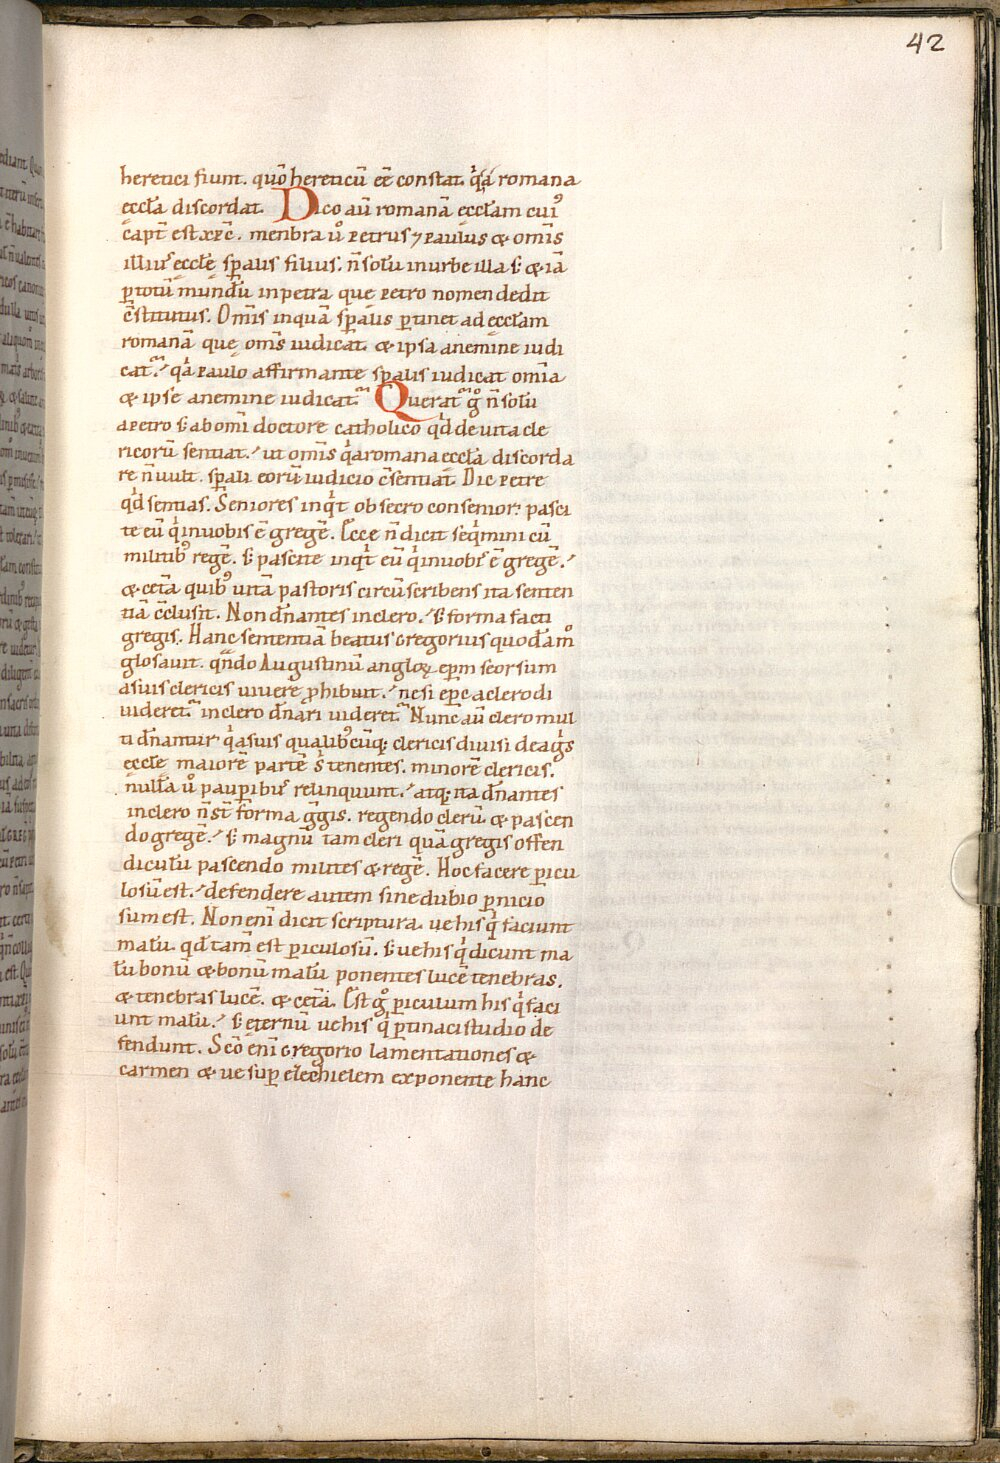 42
heretici fiunt. quō hereticū eē constat. q̄a romana
ecclā discordat. Dico aū romanā ecclam cui᷒
capt̄ est xp̄c. menbra ů petrus ⁊ paulus & om̄is
illius ecclę sp̄alis filius. ñ solū in urbe illa s; & iā
p̱ totū mundū in petra quę petro nomen dedit
c̄stitutus. Om̄is inquā sp̄alis p̱tinet ad ecclam
romanā quę om̄s iudicat. & ipsa a nemine iudi
cat᷑. q̄a paulo affirmante sp̄alis iudicat om̄ia
& ipse a nemine iudicat᷑. Querat᷑ gͦ ñ solū
a petro s; ab om̄i doctore catholico qd̄ de uita cle
ricorū sentiat. ut om̄is q̄ a romana ecclā discorda
re ñ uult. sp̄ali eorū iudicio c̄sentiat. Dic petre
qd̄ sentias. Seniores inqt̄ obsecro consenior: pasci
te eū qͥ in uobis ē gregē. Ecce ñ dicit seqͥmini cū
militib᷒ regē. s; pascite inqt̄ eū qͥ in uobis ē gregē.
& cetā quib᷒ uitā pastoris circūscribens ita senten
tiā c̄clusit. Non dn̄antes in clero. s; forma facti
gregis. Hanc sententiā beatus gregorius quodāmͦ
glosauit. qn̄do Augustinū angloꝝ ep̄m seorsum
a suis clericis uiuere p̱hibuit. ne si ep̄c a clero di
uideret᷑ in clero dn̄ari uideret᷑. Nunc aū clero mul
ti dn̄antur q̄ a suis qualib᷒cūq; clericis diuisi de agͥs
ecclę maiorē partē s̄ tenentes. minorē clericis.
nullā ů paup̱ib᷒ relinquunt. atq; ita dn̄antes
in clero ñ st̄ forma ḡgis. regendo clerū & pascen
do gregē. s; magnū tam cleri quā gregis offen
diculū pascendo milites & regē. Hoc facere p̱icu
losū est. defendere autem sine dubio p̱nicio
sum est. Non enī dicit scriptura. uę his qͥ faciunt
malū. qd̄ tam̄ est p̱iculosū. s; uę his qͥ dicunt ma
lū bonū & bonū malū ponentes lucē tenebras.
& tenebras lucē. & cetā. Est gͦ p̱iculum his qͥ faci
unt malū. s; ęternū uę his qͥ p̱tinaci studio de
fendunt. Scō enī gregorio lamentationes &
carmen & uę sup̱ ezechielem exponente hanc